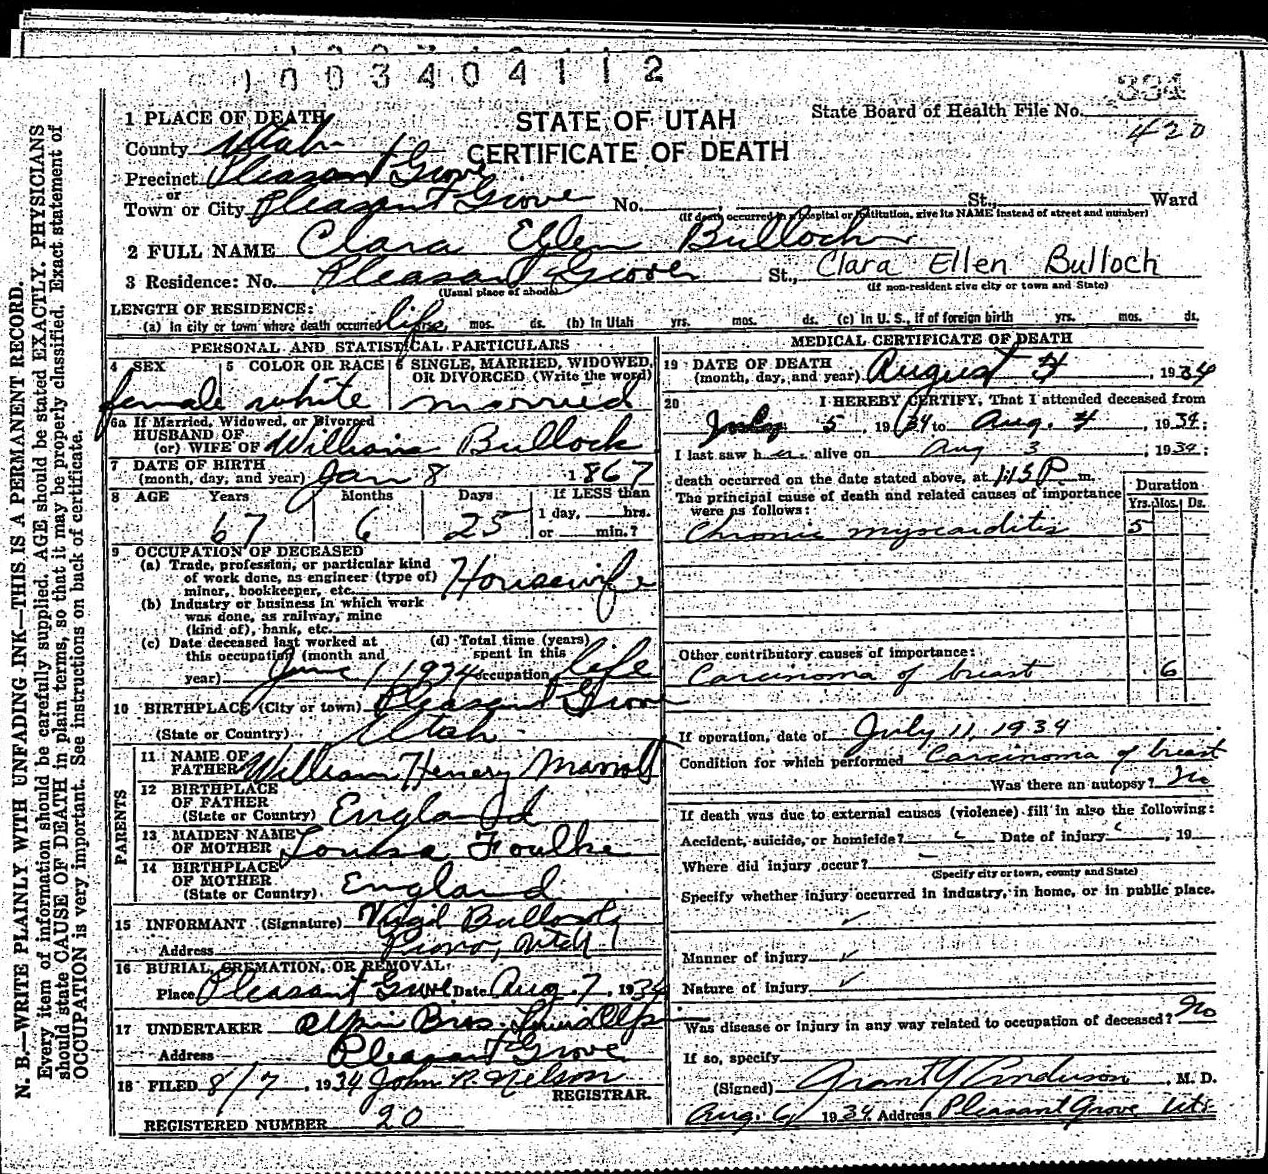 1003404112
STATE OF UTAH
CERTIFICATE OF DEATH
State Board of Health File No. 334
420
1 PLACE OF DEATH
County Utah
Precinct Pleasant Grove
or
Town or City Pleasant Grove No. St., Ward
(If death occurred in a hospital or institution, give its NAME instead of street and number)
2 FULL NAME Clara Ellen Bulloch
3 Residence: No. Pleasant Grove St., Clara Ellen Bulloch
(Usual place of abode) (If non-resident give city or town and State)
LENGTH OF RESIDENCE:
(a) In city or town where death occurred life yrs. mos. ds. (b) In Utah yrs. mos. ds. (c) In U. S., if of foreign birth yrs. mos. ds.
PERSONAL AND STATISTICAL PARTICULARS
4 SEX 5 COLOR OR RACE 6 SINGLE, MARRIED, WIDOWED, OR DIVORCED (Write the word)
female white married
6a If Married, Widowed, or Divorced
HUSBAND OF
(or) WIFE OF William Bullock
7 DATE OF BIRTH
(month, day, and year) Jan 8 1867
8 AGE Years Months Days If LESS than
67 6 25 1 day, hrs.
or min.?
9 OCCUPATION OF DECEASED
(a) Trade, profession, or particular kind
of work done, as engineer (type of)
miner, bookkeeper, etc. Housewife
(b) Industry or business in which work
was done, as railway, mine
(kind of), bank, etc.
(c) Date deceased last worked at (d) Total time (years)
this occupation (month and spent in this
year) June 1, 1934 occupation life
10 BIRTHPLACE (City or town) Pleasant Grove
(State or Country) Utah
PARENTS
11 NAME OF
FATHER William Henery
12 BIRTHPLACE
OF FATHER
(State or Country) England
13 MAIDEN NAME
OF MOTHER Louisa Foulke
14 BIRTHPLACE
OF MOTHER
(State or Country) England
15 INFORMANT (Signature) Virgil Bullock
Address Provo, Utah
16 BURIAL, CREMATION, OR REMOVAL.
Place Pleasant Grove Date Aug. 7, 1934
17 UNDERTAKER Bros.
Address Pleasant Grove
18 FILED 8/7, 1934 John R. Nelson
REGISTRAR.
REGISTERED NUMBER 20
MEDICAL CERTIFICATE OF DEATH
19 DATE OF DEATH
(month, day, and year) August 4, 1934
20 I HEREBY CERTIFY, That I attended deceased from
July 5, 1934 to Aug. 4, 1934;
I last saw her alive on Aug 3, 1934;
death occurred on the date stated above, at P m.
The principal cause of death and related causes of importance
were as follows:
Duration
Yrs. Mos. Ds.
Chronic myocarditis 5
Other contributory causes of importance:
Carcinoma of breast 6
If operation, date of July 11, 1934
Condition for which performed Carcinoma of breast
Was there an autopsy? No
If death was due to external causes (violence) fill in also the following:
Accident, suicide, or homicide? Date of injury , 19
Where did injury occur?
(Specify city or town, county and State)
Specify whether injury occurred in industry, in home, or in public place.
Manner of injury
Nature of injury
Was disease or injury in any way related to occupation of deceased? No
If so, specify
(Signed) Grant Y Anderson, M. D.
Aug. 6, 1934 Address Pleasant Grove Ut.
N. B.—WRITE PLAINLY WITH UNFADING INK—THIS IS A PERMANENT RECORD.
Every item of information should be carefully supplied. AGE should be stated EXACTLY. PHYSICIANS
should state CAUSE OF DEATH in plain terms, so that it may be properly classified. Exact statement of
OCCUPATION is very important. See instructions on back of certificate.